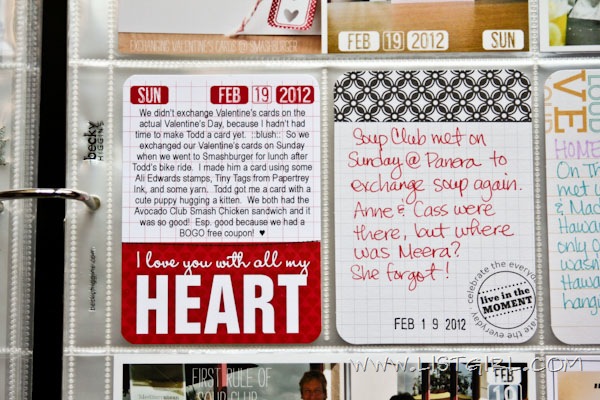 EXCHANGING VALENTINE'S CARDS @ SMASHBURGER
FEB 19 2012 SUN
becky
HIGGINS
SUN FEB 19 2012
We didn't exchange Valentine's cards on the
actual Valentine's Day, because I hadn't had
time to make Todd a card yet. :blush: So we
exchanged our Valentine's cards on Sunday
when we went to Smashburger for lunch after
Todd's bike ride. I made him a card using some
Ali Edwards stamps, Tiny Tags from Papertrey
Ink, and some yarn. Todd got me a card with a
cute puppy hugging a kitten. We both had the
Avocado Club Smash Chicken sandwich and it
was so good! Esp. good because we had a
BOGO free coupon! ♥
I love you with all my
HEART
Soup Club met on
Sunday @ Panera to
exchange soup again.
Anne & Cass were
there, but where
was Meera?
She forgot!
celebrate the everyday
live in the
MOMENT
celebrate the everyday
FEB 19 2012
LOUD
VE
HOME
On Th
met u
& Mac
Hawai
only o
wasn'
Hawa
hangi
WWW.LISTGIRL.COM
FIRST RULE OF
SOUP CLUB
FEB